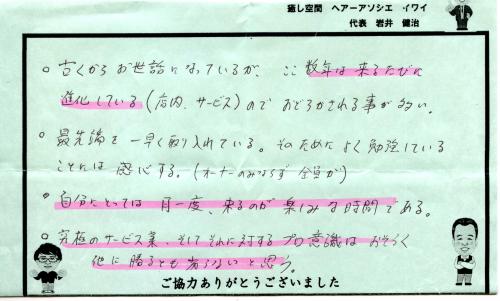 癒し空間 ヘアーアソシエ イワイ
代表 岩井 健治
○ 古くからお世話になっているが、ここ数年は来るたびに
進化している(店内、サービス)のでおどろかされる事が多い。
○ 最先端を一早く取り入れている。そのためによく勉強している
ことには感心する。(オーナーのみならず全員が)
○ 自分にとっては月一度、来るのが楽しみな時間である。
○ 究極のサービス業、そしてそれに対するプロ意識はおそらく
他に勝るとも劣らないと思う。
ご協力ありがとうございました